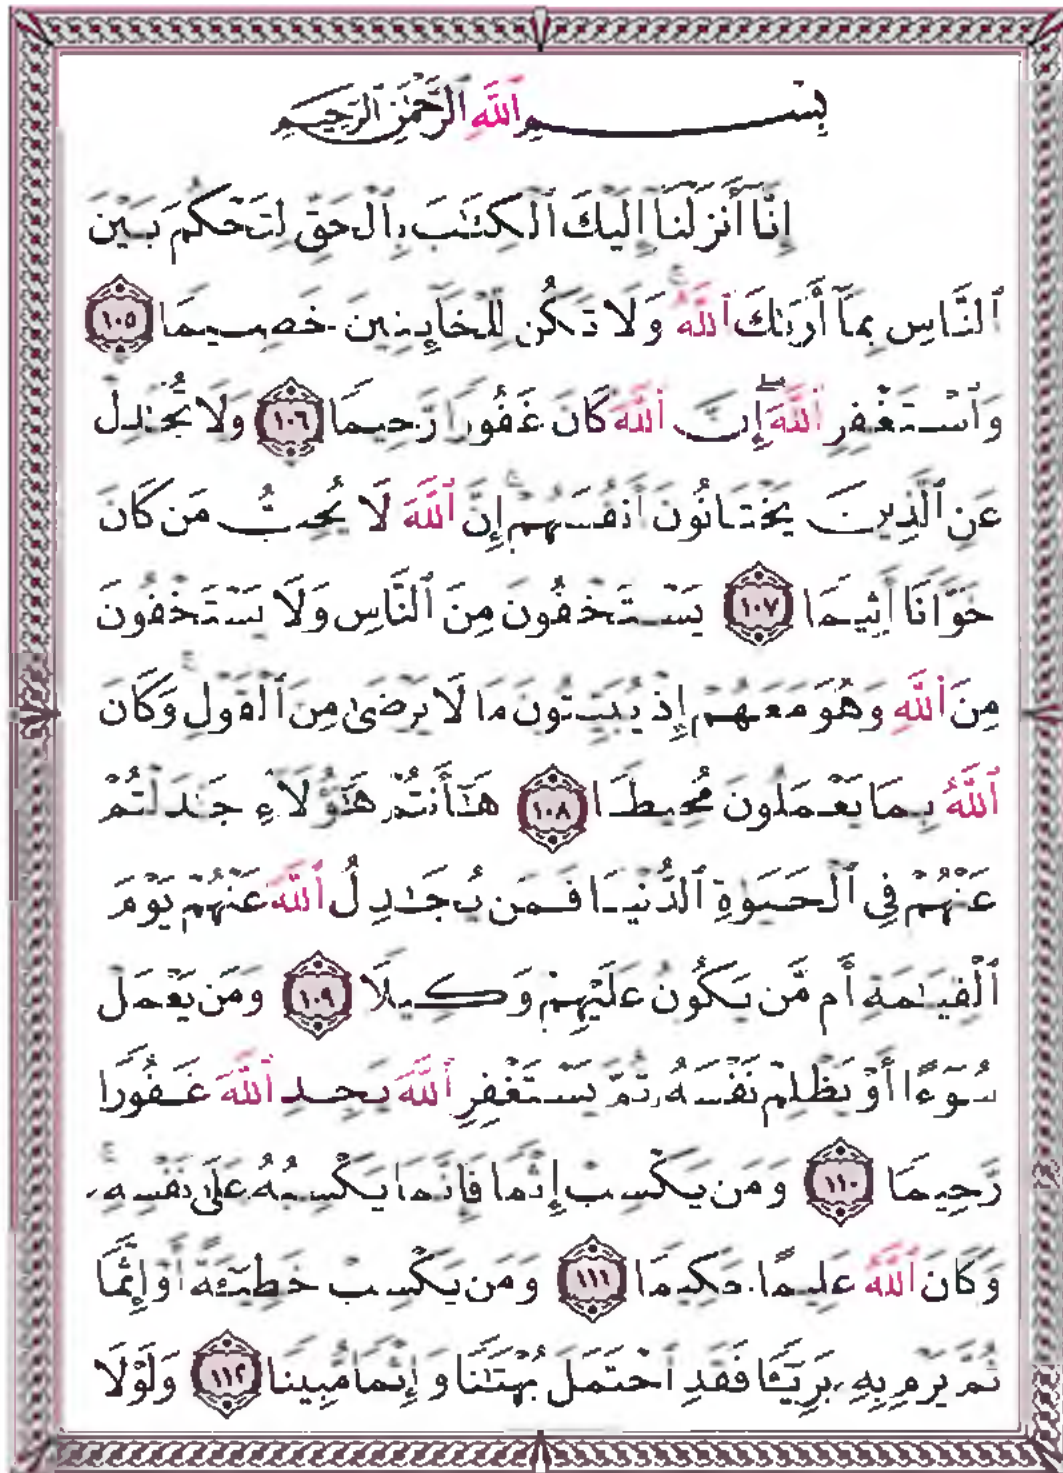 بِسْمِ ٱللَّهِ ٱلرَّحْمَٰنِ ٱلرَّحِيمِ
إِنَّآ أَنزَلْنَآ إِلَيْكَ ٱلْكِتَٰبَ بِٱلْحَقِّ لِتَحْكُمَ بَيْنَ
ٱلنَّاسِ بِمَآ أَرَىٰكَ ٱللَّهُ ۚ وَلَا تَكُن لِّلْخَآئِنِينَ خَصِيمًا ١٠٥
وَٱسْتَغْفِرِ ٱللَّهَ ۖ إِنَّ ٱللَّهَ كَانَ غَفُورًا رَّحِيمًا ١٠٦ وَلَا تُجَٰدِلْ
عَنِ ٱلَّذِينَ يَخْتَانُونَ أَنفُسَهُمْ ۚ إِنَّ ٱللَّهَ لَا يُحِبُّ مَن كَانَ
خَوَّانًا أَثِيمًا ١٠٧ يَسْتَخْفُونَ مِنَ ٱلنَّاسِ وَلَا يَسْتَخْفُونَ
مِنَ ٱللَّهِ وَهُوَ مَعَهُمْ إِذْ يُبَيِّتُونَ مَا لَا يَرْضَىٰ مِنَ ٱلْقَوْلِ ۚ وَكَانَ
ٱللَّهُ بِمَا يَعْمَلُونَ مُحِيطًا ١٠٨ هَٰٓأَنتُمْ هَٰٓؤُلَآءِ جَٰدَلْتُمْ
عَنْهُمْ فِي ٱلْحَيَوٰةِ ٱلدُّنْيَا فَمَن يُجَٰدِلُ ٱللَّهَ عَنْهُمْ يَوْمَ
ٱلْقِيَٰمَةِ أَم مَّن يَكُونُ عَلَيْهِمْ وَكِيلًا ١٠٩ وَمَن يَعْمَلْ
سُوٓءًا أَوْ يَظْلِمْ نَفْسَهُۥ ثُمَّ يَسْتَغْفِرِ ٱللَّهَ يَجِدِ ٱللَّهَ غَفُورًا
رَّحِيمًا ١١٠ وَمَن يَكْسِبْ إِثْمًا فَإِنَّمَا يَكْسِبُهُۥ عَلَىٰ نَفْسِهِۦ ۚ
وَكَانَ ٱللَّهُ عَلِيمًا حَكِيمًا ١١١ وَمَن يَكْسِبْ خَطِيٓـَٔةً أَوْ إِثْمًا
ثُمَّ يَرْمِ بِهِۦ بَرِيٓـًٔا فَقَدِ ٱحْتَمَلَ بُهْتَٰنًا وَإِثْمًا مُّبِينًا ١١٢ وَلَوْلَا